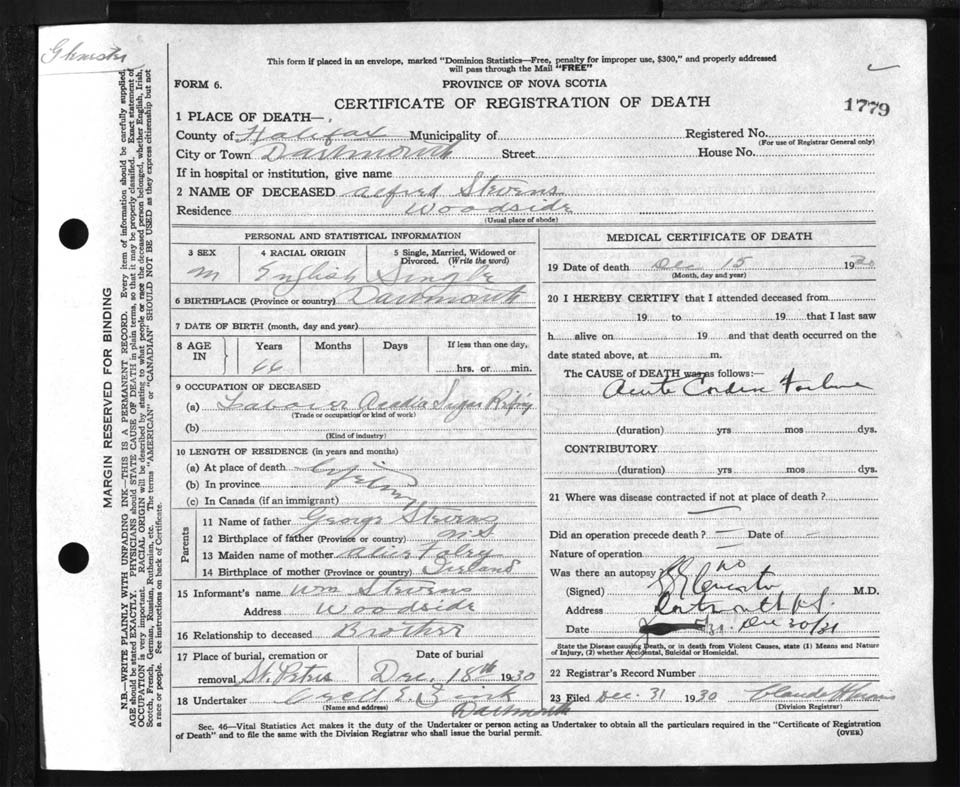 This form if placed in an envelope, marked "Dominion Statistics—Free, penalty for improper use, $300," and properly addressed
will pass through the Mail "FREE"
FORM 6.
PROVINCE OF NOVA SCOTIA
CERTIFICATE OF REGISTRATION OF DEATH
1779
1 PLACE OF DEATH—
County of Halifax Municipality of Registered No.
(For use of Registrar General only)
City or Town Dartmouth Street House No.
If in hospital or institution, give name
2 NAME OF DECEASED Alfred Stevens
Residence Woodside
(Usual place of abode)
PERSONAL AND STATISTICAL INFORMATION
3 SEX 4 RACIAL ORIGIN 5 Single, Married, Widowed or Divorced. (Write the word)
M English Single
6 BIRTHPLACE (Province or country) Dartmouth
7 DATE OF BIRTH (month, day and year)
8 AGE IN Years Months Days If less than one day,
66 hrs. or min.
9 OCCUPATION OF DECEASED
(a) Labourer Acadia Sugar
(Trade or occupation or kind of work)
(b)
(Kind of industry)
10 LENGTH OF RESIDENCE (in years and months)
(a) At place of death
(b) In province
(c) In Canada (if an immigrant)
Parents
11 Name of father George Stevens
12 Birthplace of father (Province or country) N S
13 Maiden name of mother Alice Foley
14 Birthplace of mother (Province or country) Ireland
15 Informant's name Wm Stevens
Address Woodside
16 Relationship to deceased Brother
17 Place of burial, cremation or removal St. Peters Date of burial Dec. 18th 1930
18 Undertaker
(Name and address) Dartmouth
MEDICAL CERTIFICATE OF DEATH
19 Date of death Dec 15 1930
(Month, day and year)
20 I HEREBY CERTIFY that I attended deceased from
19 to 19 that I last saw
h alive on 19 and that death occurred on
date stated above, at m.
The CAUSE of DEATH was as follows:—
Acute Failure
(duration) yrs mos dys.
CONTRIBUTORY
(duration) yrs mos dys.
21 Where was disease contracted if not at place of death?
Did an operation precede death? Date of
Nature of operation
Was there an autopsy? no
(Signed) M.D.
Address Dartmouth N.S.
Date Dec 30/31
State the Disease causing Death, or in death from Violent Causes, state (1) Means and Nature
of Injury, (2) whether Accidental, Suicidal or Homicidal.
22 Registrar's Record Number
23 Filed Dec. 31 1930
(Division Registrar)
Sec. 46—Vital Statistics Act makes it the duty of the Undertaker or person acting as Undertaker to obtain all the particulars required in the "Certificate of Registration
of Death" and to file the same with the Division Registrar who shall issue the burial permit.
(OVER)
MARGIN RESERVED FOR BINDING
N.B.—WRITE PLAINLY WITH UNFADING INK—THIS IS A PERMANENT RECORD. Every item of information should be carefully supplied.
AGE should be stated EXACTLY. PHYSICIANS should STATE CAUSE OF DEATH in plain terms, so that it may be properly classified. Exact statement of
OCCUPATION is very important. RACIAL ORIGIN will be described by stating to what people or race the deceased person belonged, whether English, Irish,
Scotch, French, German, Russian, Ruthenian, etc. The terms "AMERICAN" or "CANADIAN" SHOULD NOT BE USED as they express citizenship but not
a race or people. See instructions on back of Certificate.